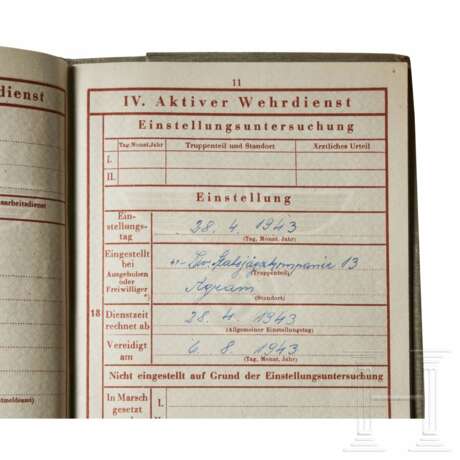 dienst
sarbeitsdienst
tmeldeamt)
11
IV. Aktiver Wehrdienst
Einstellungsuntersuchung
Tag, Monat, Jahr Truppenteil und Standort Ärztliches Urteil
I.
II.
Einstellung
Ein-
stellungs-
tag
28. 4. 1943
(Tag, Monat, Jahr)
Eingestellt
bei
Ausgehoben
oder
Freiwilliger
13
(Truppenteil)
Agram
(Standort)
18
Dienstzeit
rechnet ab
28. 4. 1943
(Allgemeiner Einstellungstag)
Vereidigt
am
6. 8. 1943
(Tag, Monat, Jahr)
Nicht eingestellt auf Grund der Einstellungsuntersuchung
In Marsch
gesetzt
I.
II.